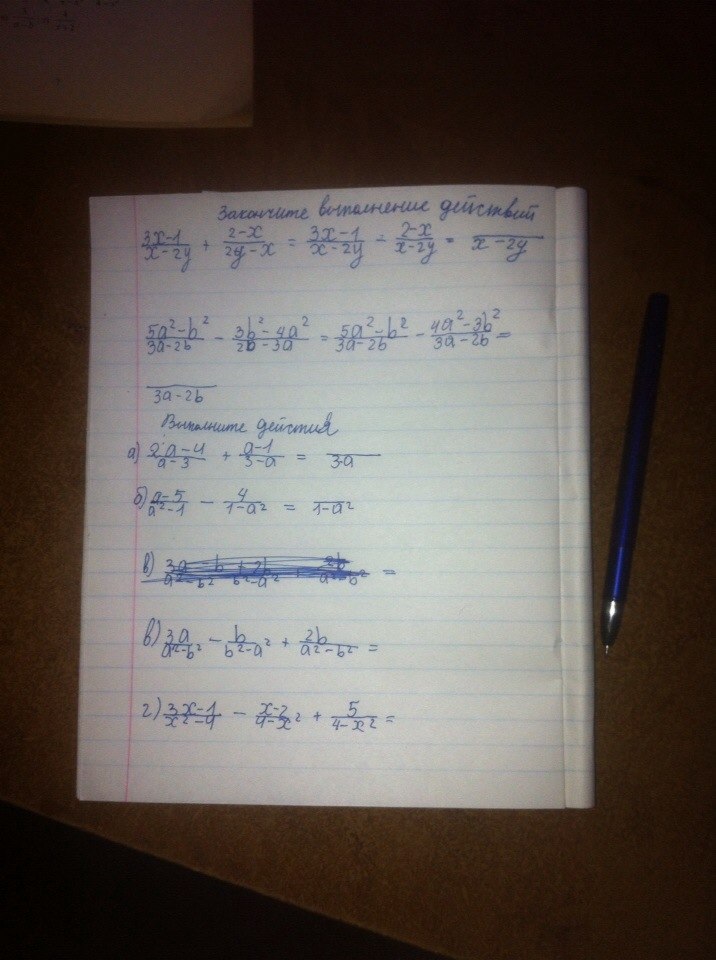 Закончите выполнение действий
(3x-1)/(x-2y) + (2-x)/(2y-x) = (3x-1)/(x-2y) - (2-x)/(x-2y) = /(x-2y)
(5a²-b²)/(3a-2b) - (3b²-4a²)/(2b-3a) = (5a²-b²)/(3a-2b) - (4a²-3b²)/(3a-2b) =
/(3a-2b)
Выполните действия
а) (2a-4)/(a-3) + (a-1)/(3-a) = /(3-a)
б) (a-5)/(a²-1) - 4/(1-a²) = /(1-a²)
в) =
в) 3a/(a²-b²) - b/(b²-a²) + 2b/(a²-b²) =
г) (3x-1)/(x²-4) - (x-2)/(4-x²) + 5/(4-x²) =